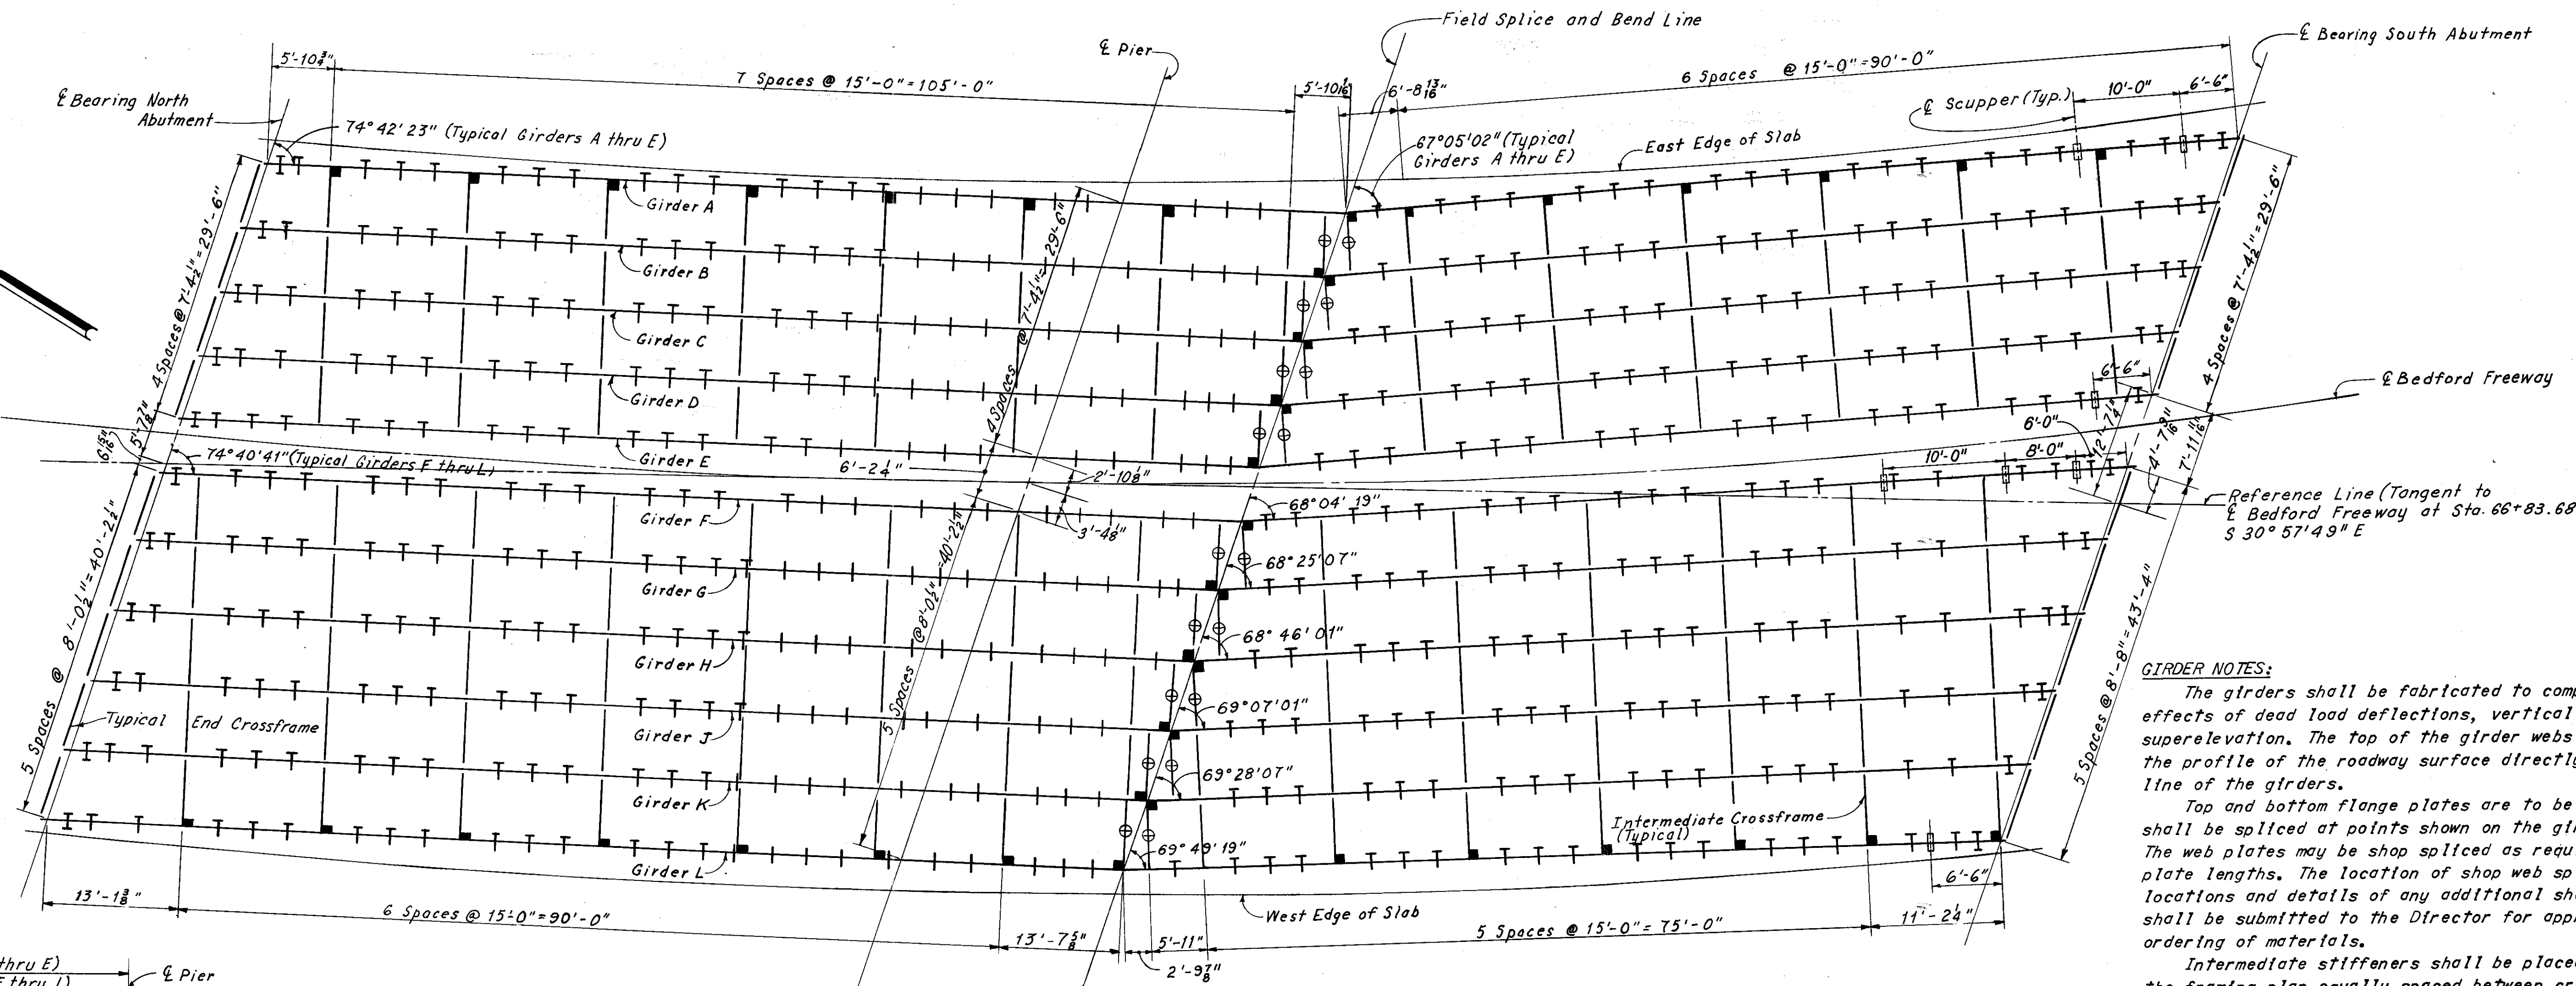 Field Splice and Bend Line
℄ Pier
℄ Bearing South Abutment
5'-10¾"
7 Spaces @ 15'-0"=105'-0"
5'-10 1/16"
6'-8 13/16"
6 Spaces @ 15'-0"=90'-0"
10'-0"
6'-6"
℄ Scupper (Typ.)
℄ Bearing North
Abutment
74°42'23" (Typical Girders A thru E)
67°05'02" (Typical
Girders A thru E)
East Edge of Slab
Girder A
Girder B
Girder C
Girder D
Girder E
4 Spaces @ 7'-4½"=29'-6"
4 Spaces @ 7'-4½"=29'-6"
4 Spaces @ 7'-4½"=29'-6"
℄ Bedford Freeway
5'-7⅞"
6 15/16"
74°40'41" (Typical Girders F thru L)
6'-2¼"
2'-10⅛"
3'-4⅛"
6'-6"
6'-0"
12'-7¼"
4'-7 9/16"
7'-11 11/16"
10'-0"
8'-0"
Reference Line (Tangent to
℄ Bedford Freeway at Sta. 66+83.68
S 30°57'49" E
Girder F
68°04'19"
Girder G
68°25'07"
Girder H
68°46'01"
Girder J
69°07'01"
Girder K
69°28'07"
Girder L
69°49'19"
5 Spaces @ 8'-0½"=40'-2½"
5 Spaces @ 8'-0½"=40'-2½"
5 Spaces @ 8'-8"=43'-4"
Typical End Crossframe
Intermediate Crossframe
(Typical)
West Edge of Slab
6'-6"
13'-1⅜"
6 Spaces @ 15'-0"=90'-0"
13'-7⅝"
5'-11"
2'-9⅞"
5 Spaces @ 15'-0"=75'-0"
11'-2¼"
thru E)
F thru L)
℄ Pier
GIRDER NOTES:
The girders shall be fabricated to comp
effects of dead load deflections, vertical
superelevation. The top of the girder webs
the profile of the roadway surface directly
line of the girders.
Top and bottom flange plates are to be
shall be spliced at points shown on the gir
The web plates may be shop spliced as requ
plate lengths. The location of shop web sp
locations and details of any additional sho
shall be submitted to the Director for app
ordering of materials.
Intermediate stiffeners shall be placed
the framing plan equally spaced between cr